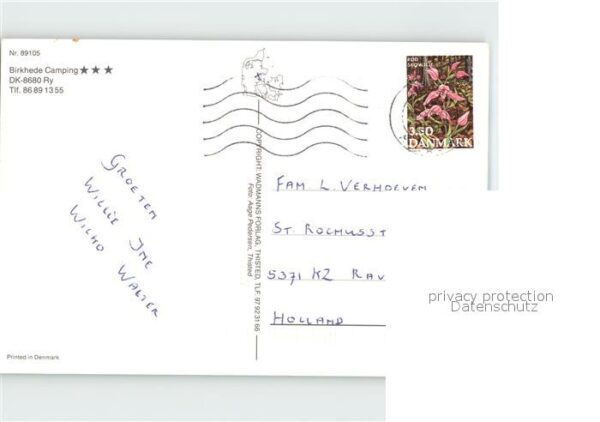 Nr. 89105
Birkhede Camping ★★★
DK-8680 Ry
Tlf. 86 89 13 55
GROETEN
WILLIE INE
WILKO WALTER
Printed in Denmark
COPYRIGHT: WADMANNS FORLAG, THISTED, TLF. 97 92 31 66
Foto: Aage Pedersen, Thisted
RØD SKOVLILJE
3.50
DANMARK
FAM. L. VERHOEVEN
ST ROCHUSST
5371 KZ RAV
HOLLAND
privacy protection
Datenschutz